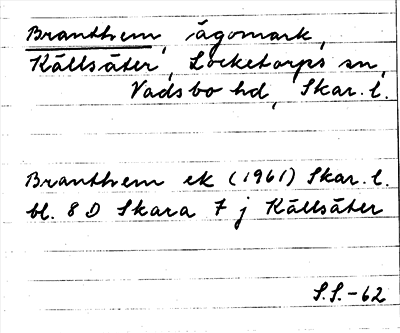 Branthem, ägomark,
Källsäter, Locketorps sn,
Vadsbo hd, Skar. l.
Branthem ek (1961) Skar. l.
bl. 8 D Skara 7 j Källsäter
S.S.-62